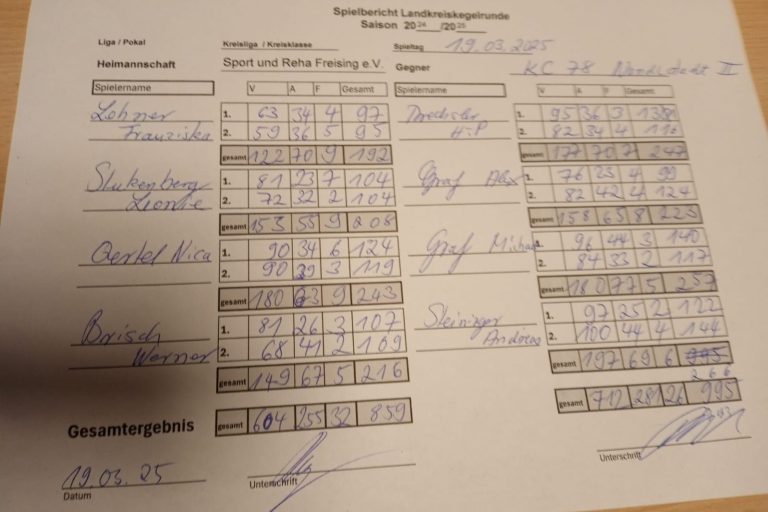 Spielbericht Landkreiskegelrunde
Saison 2024 /2025
Liga / Pokal Kreisliga / Kreisklasse Spieltag 19.03.2025
Heimannschaft Sport und Reha Freising e.V. Gegner KC 78 II
Spielername V A F Gesamt Spielername V A F Gesamt
Lohner 1. 63 34 4 97 Drechsler 1. 95 36 3
Franziska 2. 59 36 5 95 H-P 2. 82 34 4 116
gesamt 122 70 9 192 gesamt 177 70 7 247
1. 81 23 7 104 Graf Alex 1. 76 23 4 99
Leonie 2. 72 32 2 104 2. 82 42 4 124
gesamt 153 55 9 208 gesamt 158 65 8 223
Oertel Nica 1. 90 34 6 124 Graf 1. 96 44 3 140
2. 90 29 3 119 2. 84 33 2 117
gesamt 180 63 9 243 gesamt 180 77 5 257
Brisch 1. 81 26 3 107 Steininger 1. 97 25 2 122
Werner 2. 68 41 2 109 Andreas 2. 100 44 4 144
gesamt 149 67 5 216 gesamt 197 69 6
266
Gesamtergebnis gesamt 604 255 32 859 gesamt 712 281 26 995
19.03.25
Datum Unterschrift Unterschrift